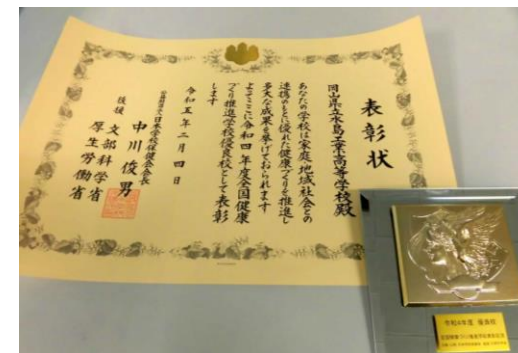 表彰状
岡山県立水島工業高等学校殿
あなたの学校は家庭地域社会との
連携のもとに優れた健康づくりを推進し
多大な成果を挙げておられます
よってここに令和四年度全国健康
づくり推進学校優良校として表彰
します
令和五年二月四日
公益財団法人日本学校保健会会長
中川俊男
後援 文部科学省
厚生労働省
令和4年度 優良校